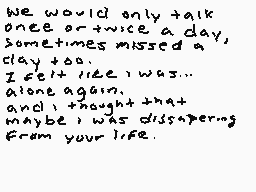 we would only talk
once or twice a day,
sometimes missed a
day too.
I felt like i was...
alone again.
and i thought that
maybe i was dissapering
from your life.